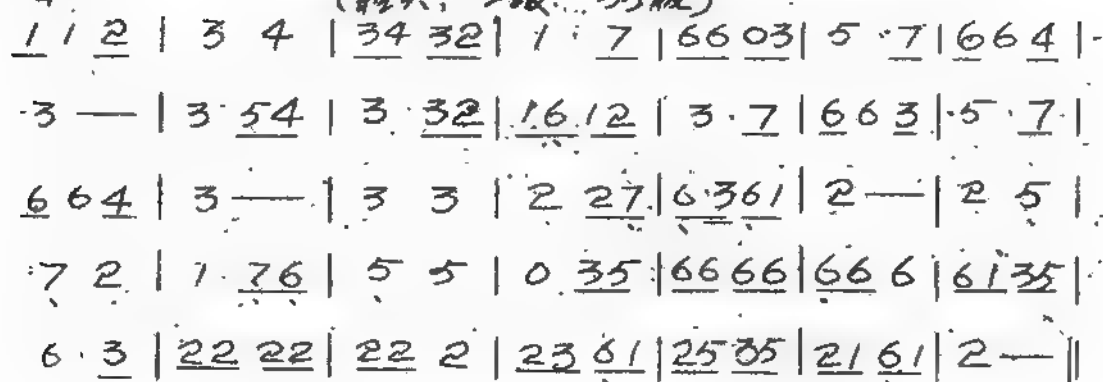 1 1 2 | 3 4 | 34 32 | 1 · 7 | 66 03 | 5 · 7 | 6 6 4 |
3 — | 3 · 54 | 3 · 32 | 16 12 | 3 · 7 | 6 6 3 | 5 · 7 |
6 6 4 | 3 — | 3 3 | 2 27 | 6·361 | 2 — | 2 5 |
7 2 | 1 · 76 | 5 5 | 0 35 | 66 66 | 66 6 | 61 35 |
6 · 3 | 22 22 | 22 2 | 23 61 | 25 35 | 21 61 | 2 — ||